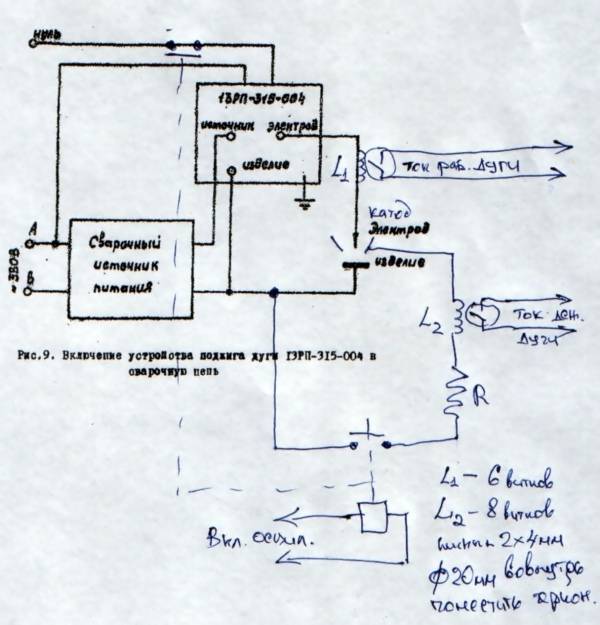 нуль
ІЭРП-315-004
источник электрод
изделие
L1
ток раб. дуги
катод
электрод
изделие
А
~380В
В
Сварочный
источник
питания
L2
ток деж.
дуги
Рис.9. Включение устройства поджига дуги ІЭРП-315-004 в
сварочную цепь
R
Вкл. осцил.
L1 – 6 витков
L2 – 8 витков
2×4мм
ф20мм вовнутрь
поместить геркон.